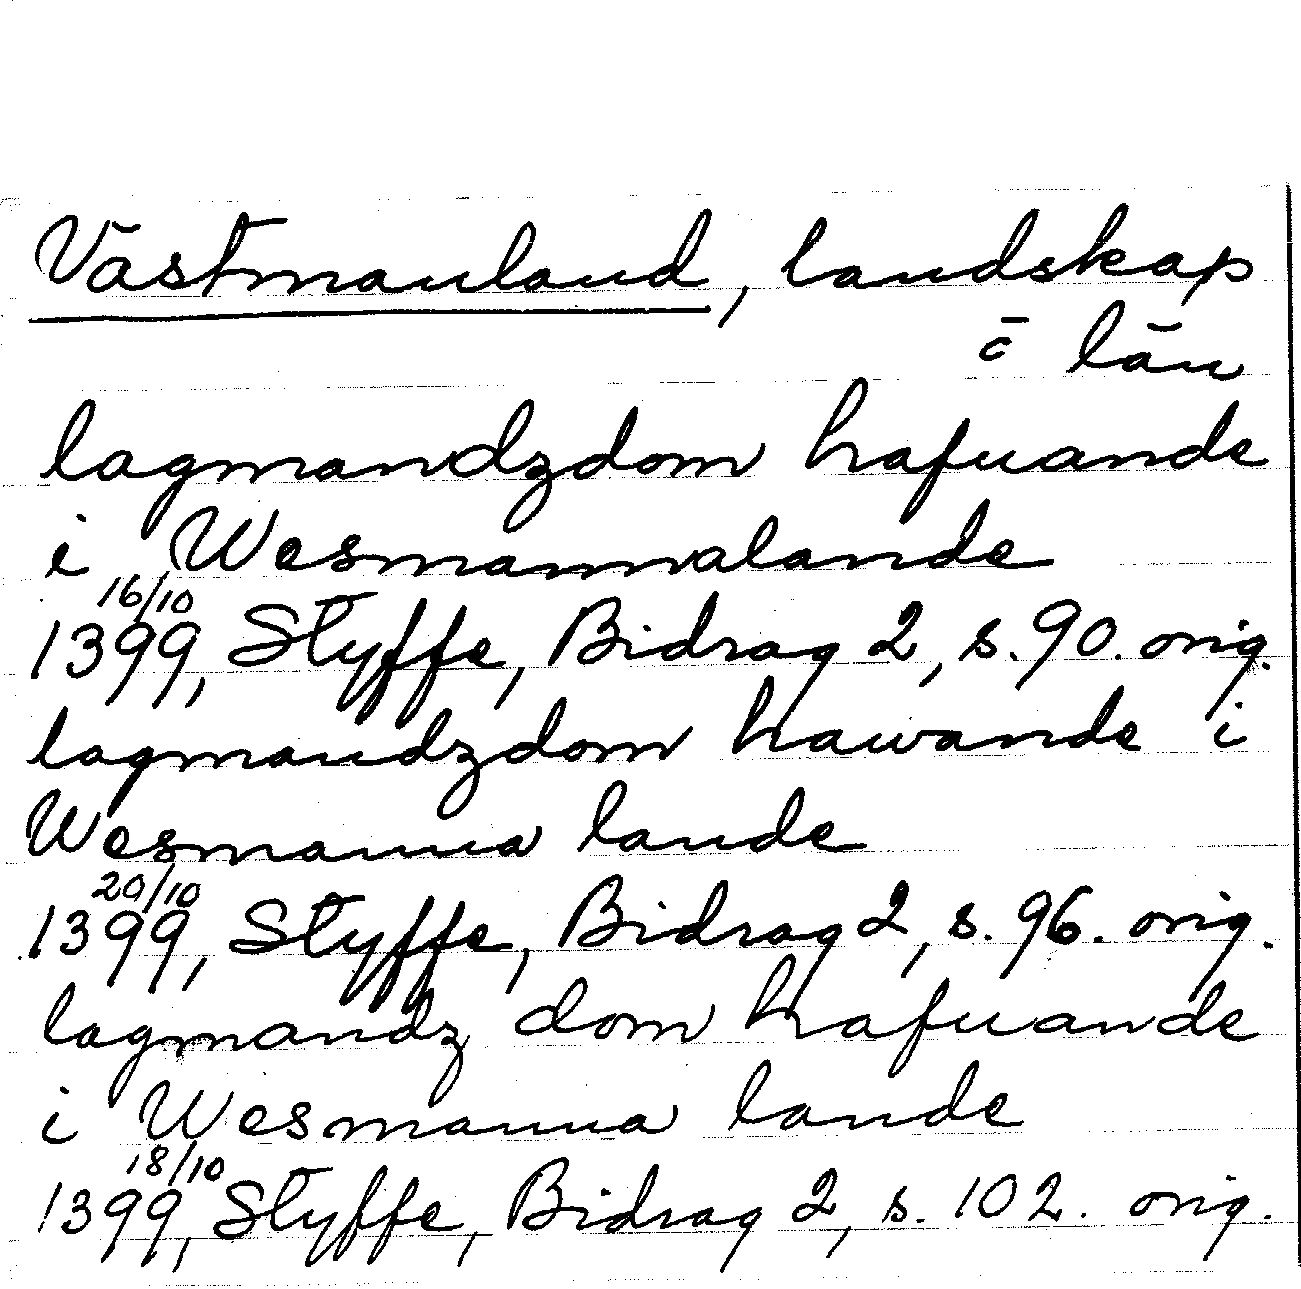 Västmanland, landskap
o län
lagmandzdom hafuande
i Wesmannalande
16/10
1399, Styffe, Bidrag 2, s. 90. orig.
lagmandzdom hawande i
Wesmanna lande
20/10
1399, Styffe, Bidrag 2, s. 96. orig.
lagmandz dom hafuande
i Wesmanna lande
18/10
1399, Styffe, Bidrag 2, s. 102. orig.